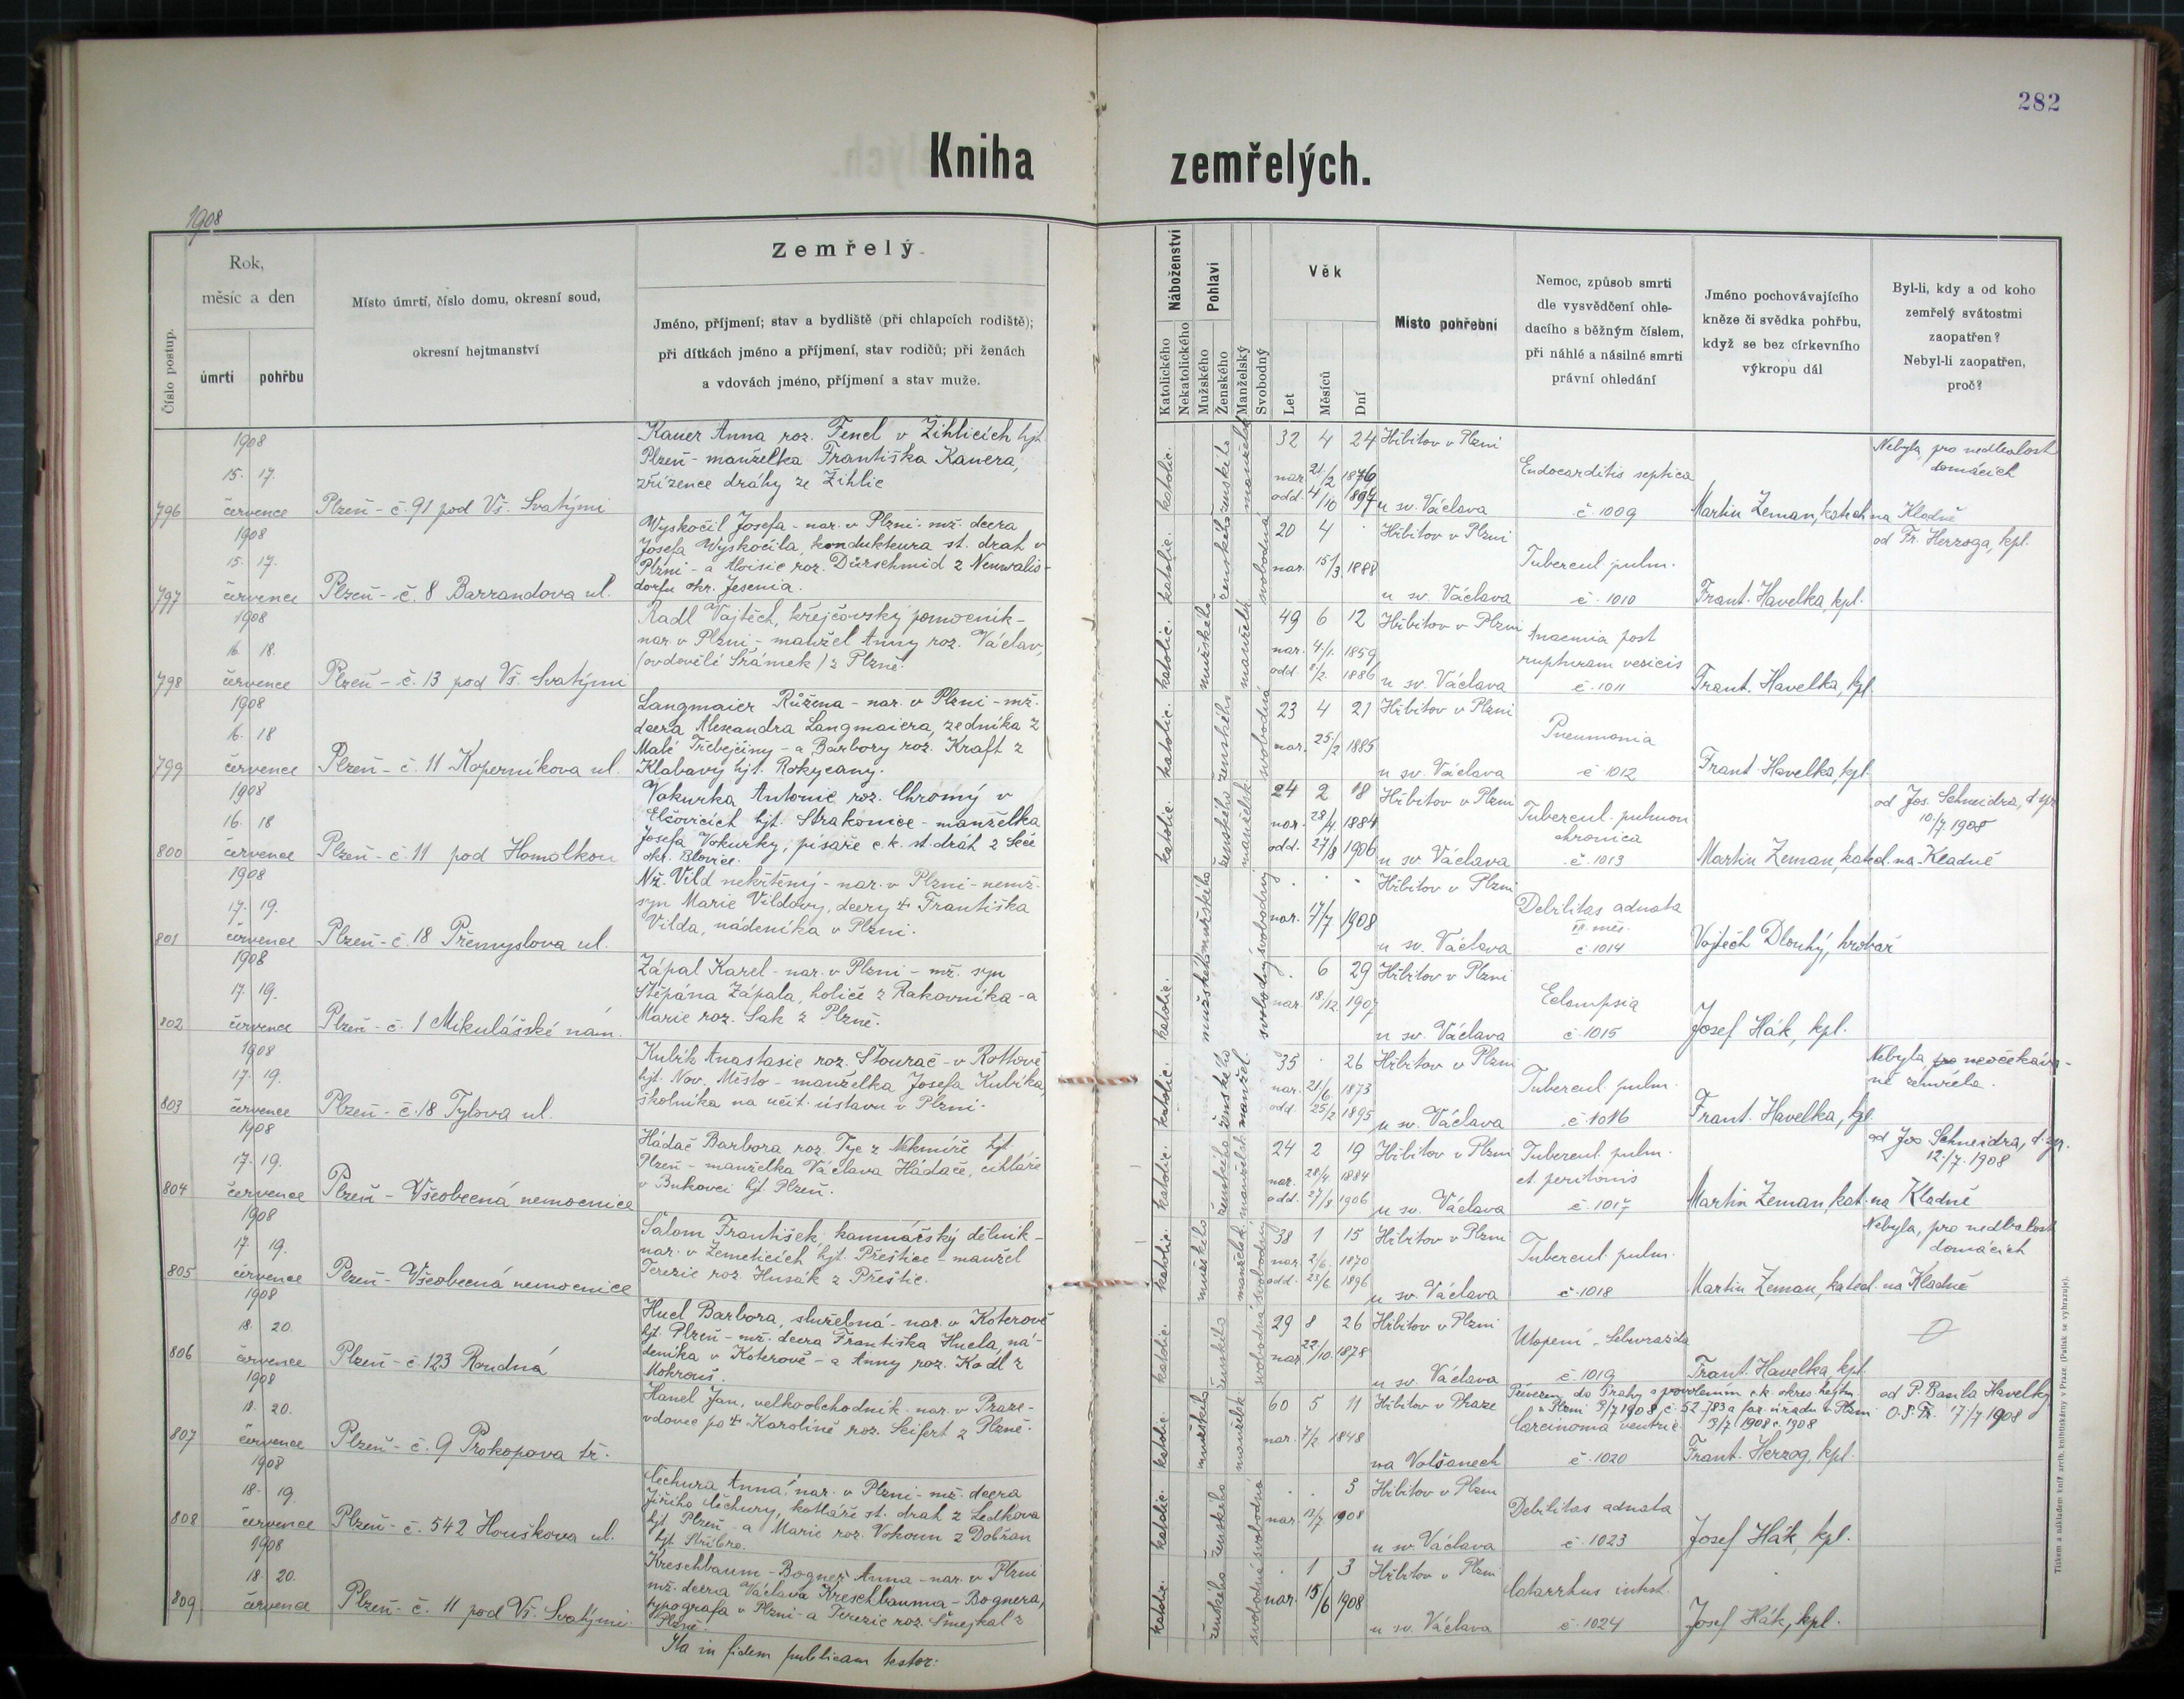 282
Kniha zemřelých.
1908
Číslo postup.
Rok,
měsíc a den
úmrtí
pohřbu
Místo úmrtí, číslo domu, okresní soud,
okresní hejtmanství
Zemřelý
Jméno, příjmení; stav a bydliště (při chlapcích rodiště);
při dítkách jméno a příjmení, stav rodičů; při ženách
a vdovách jméno, příjmení a stav muže.
Náboženství
Katolického
Nekatolického
Pohlaví
Mužského
Ženského
Manželský
Svobodný
Věk
Let
Měsíců
Dní
Místo pohřební
Nemoc, způsob smrti
dle vysvědčení ohle-
dacího s běžným číslem,
při náhlé a násilné smrti
právní ohledání
Jméno pochovávajícího
kněze či svědka pohřbu,
když se bez církevního
výkropu dál
Byl-li, kdy a od koho
zemřelý svátostmi
zaopatřen?
Nebyl-li zaopatřen,
proč?
796
1908
15. 17.
července
Plzeň - č. 91 pod Vš. Svatými
Kauer Anna roz. Fencl v Žihlicích hjt.
Plzeň - manželka Františka Kauera,
zřízence dráhy ze Žihlic
katolic.
ženského
manželsk
32 4 24
nar. 21/2 1876
odd. 4/10 1897
Hřbitov v Plzni
u sv. Václava
Endocarditis septica
č. 1009
Martin Zeman, katech. na Kladně
Nebyla, pro nedbalost
domácích
797
1908
15. 17.
července
Plzeň - č. 8 Barrandova ul.
Wyskočil Josefa - nar. v Plzni - mž. dcera
Josefa Wyskočila, kondukteura st. drah v
Plzni - a Aloisie roz. Dürschmid z Neuwalis-
dorfu okr. Jesenia.
katolic.
ženského
svobodná
20 4 .
nar. 15/3 1888
Hřbitov v Plzni
u sv. Václava
Tubercul. pulm.
č. 1010
Frant. Havelka, kpl.
od Fr. Herzoga, kpl.
798
1908
16 18.
července
Plzeň - č. 13 pod Vš. Svatými
Radl Vojtěch, krejčovský pomocník -
nar. v Plzni - manžel Anny roz. Václav,
(ovdovělé Šrámek) z Plzně.
katolic.
mužského
manželsk
49 6 12
nar. 4/1. 1859
odd. 1886
Hřbitov v Plzni
u sv. Václava
Anaemia post
rupturam vesicis
č. 1011
Frant. Havelka, kpl
799
1908
16. 18
července
Plzeň - č. 11 Koperníkova ul.
Langmaier Růžena - nar. v Plzni - mž.
dcera Alexandra Langmaiera, zedníka z
Malé Třebejčiny - a Barbory roz. Kraft z
Klabavy hjt. Rokycany.
katolic.
ženského
svobodná
23 4 21
nar. 25/2 1885
Hřbitov v Plzni
u sv. Václava
Pneumonia
č 1012
Frant. Havelka, kpl
800
1908
16. 18
července
Plzeň - č. 11 pod Homolkou
Vokurka Antonie roz. Chromý v
Elčovicích hjt. Strakonice - manželka
Josefa Vokurky, písaře c. k. st. dráh z Seče
okr. Blovice.
katolic.
ženského
manželsk.
24 2 18
nar. 28/4. 1884
odd. 27/8 1906
Hřbitov v Plzni
u sv. Václava
Tubercul. pulmon
chronica
č. 1013
Martin Zeman, kated. na Kladně
od Jos. Schneidra,
10/7. 1908
801
1908
17. 19.
července
Plzeň - č. 18 Přemyslova ul.
Nž. Vild nekřtěný - nar. v Plzni - nemž.
syn Marie Vildovy, dcery Františka
Vilda, nádeníka v Plzni.
mužského
svobodný
nar. 17/7 1908
Hřbitov v Plzni
u sv. Václava
Debilitas adnata
č. 1014
Vojtěch Dlouhý, hrobař
802
1908
17. 19.
července
Plzeň - č. 1 Mikulášské nám.
Zápal Karel - nar. v Plzni - mž. syn
Štěpána Zápala, holiče z Rakovníka - a
Marie roz. Sak z Plzně.
katolic.
mužského
svobodný
. 6 29
nar. 18/12. 1907
Hřbitov v Plzni
u sv. Václava
Eclampsia
č. 1015
Josef Hák, kpl.
803
1908
17. 19.
července
Plzeň - č. 18 Tylova ul.
Kubík Anastasie roz. Štourač - v Rottově
hjt. Nov. Město - manželka Josefa Kubíka,
školníka na učit. ústavu v Plzni.
katolic.
ženského
manžel.
35 . 26
nar. 21/6 1873
odd. 25/2 1895
Hřbitov v Plzni
u sv. Václava
Tubercul. pulm.
č. 1016
Frant. Havelka, kpl.
Nebyla, pro neočekáva-
ně zemřela.
804
1908
17. 19.
července
Plzeň - Všeobecná nemocnice
Hádač Barbora roz. Tyc z Nekmíře hjt
Plzeň - manželka Václava Hádače, cihláře
v Bukovci hjt. Plzeň.
katolic.
ženského
manželsk.
24 2 19
nar. 28/4. 1884
odd. 27/8 1906
Hřbitov v Plzni
u sv. Václava
Tubercul. pulm.
et peritonis
č. 1017
Martin Zeman, kat. na Kladně
od Jos Schneidra,
12./7. 1908
805
1908
17. 19.
července
Plzeň - Všeobecná nemocnice
Šalom František, kamnářský dělník -
nar. v Zemeticích, hjt. Přeštice - manžel
Terezie roz. Husák z Přeštic.
katolic.
mužského
manželsk.
38 1 15
nar. 2/6. 1870
odd. 23/6. 1896
Hřbitov v Plzni
u sv. Václava
Tubercul. pulm.
č. 1018
Martin Zeman, kated. na Kladně
Nebyla, pro nedbalost
domácích
806
1908
18. 20.
července
Plzeň - č. 123 Roudná
Hucl Barbora, služebná - nar. v Koterově
hjt. Plzeň - mž. dcera Františka Hucla, ná-
deníka v Koterově - a Anny roz. Kodl z
Mokrouš.
katolic.
ženského
svobodná
29 8 26
nar. 22/10. 1878
Hřbitov v Plzni
u sv. Václava
Utopení - Sebevražda
č. 1019
Frant. Havelka, kpl.
807
1908
18. 20.
července
Plzeň - č. 9 Prokopova tř.
Hanel Jan, velkoobchodník - nar. v Praze -
vdovec po Karolíně roz. Seifert z Plzně.
katolic.
mužského
manželsk
60 5 11
nar. 7/2 1848
Hřbitov v Praze
na Volšanech
Převezen do Prahy s povolením c. k. okres. hejtm.
v Plzni 9/7 1908 č. 52.783 a far. úřadu v Plzni
9/7 1908 č. 1908
Carcinoma ventric
č. 1020
Frant. Herzog, kpl.
od P. Basila Havelky
O. S. Fr. 17/7 1908
808
1908
18. 19.
července
Plzeň - č. 542 Houškova ul.
Čechura Anna, nar. v Plzni - mž. dcera
Jiřího Čechury, kotláře st. drah z Ledkova
hjt Plzeň - a Marie roz. Vokoun z Dobřan
hjt. Stříbro.
katolic.
ženského
svobodná
. . 5
nar. 13/7 1908
Hřbitov v Plzni
u sv. Václava
Debilitas adnata
č. 1023
Josef Hák, kpl.
809
1908
18. 20.
července
Plzeň - č. 11 pod Vš. Svatými.
Kreschbaum - Bogner Anna - nar. v Plzni
mž. dcera Václava Kreschbauma - Bognera,
typografa v Plzni - a Terezie roz. Šmejkal z
Plzně.
katolic.
ženského
svobodná
. 1 3
nar. 15/6 1908
Hřbitov v Plzni
u sv. Václava
Catarrhus intest.
č. 1024
Josef Hák, kpl.
Ita in fidem publicam testor:
Tiskem a nákladem kníž. arcib. knihtiskárny v Praze. (Patisk se vyhrazuje).